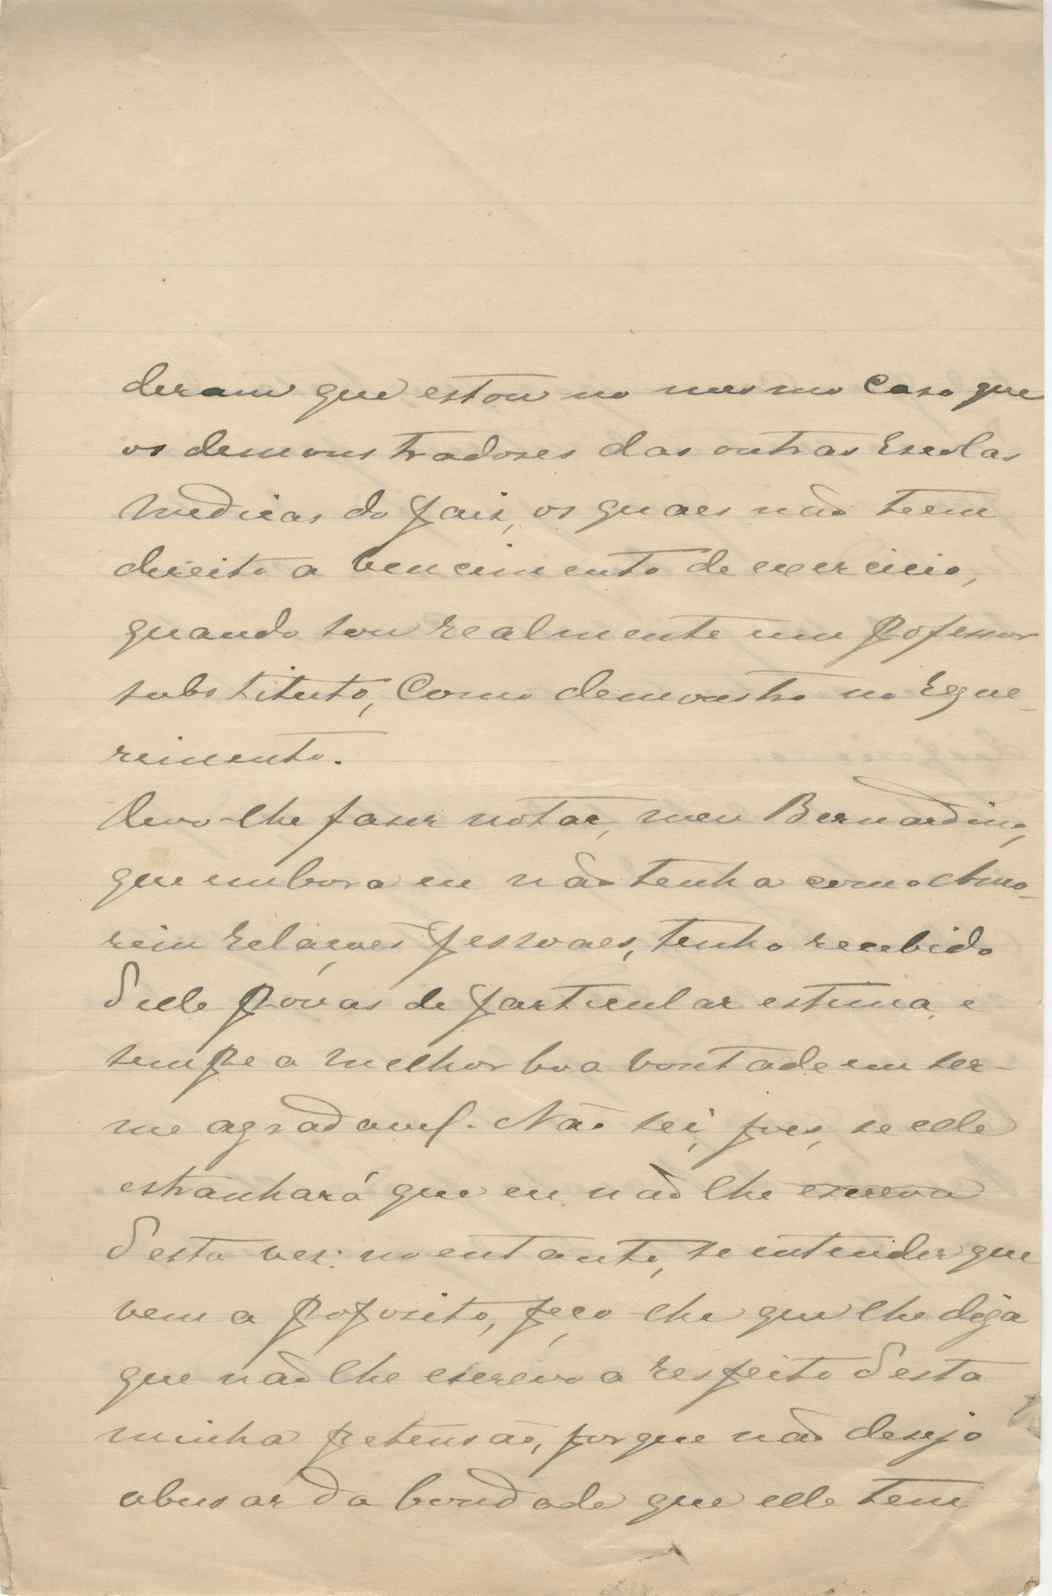 deram que estou no mesmo caso que
os demonstradores das outras Escolas
Medicas do paiz, os quaes não teem
direito a vencimento de exercicio,
quando sou realmente um professor
substituto, como demonstro no reque-
rimento.
Devo-lhe fazer notar, meu Bernardino,
que embora eu não tenha com o Amo-
rim relações pessoaes, tenho recebido
d'elle provas de particular estima, e
sempre a melhor boa vontade em ser-
me agradavel. Não sei, pois, se elle
estranhará que eu não lhe escreva
d'esta vez: no entanto, se entender que
vem a proposito, peço-lhe que lhe diga
que não lhe escrevo a respeito d'esta
minha pretensão, porque não desejo
abusar da bondade que elle tem